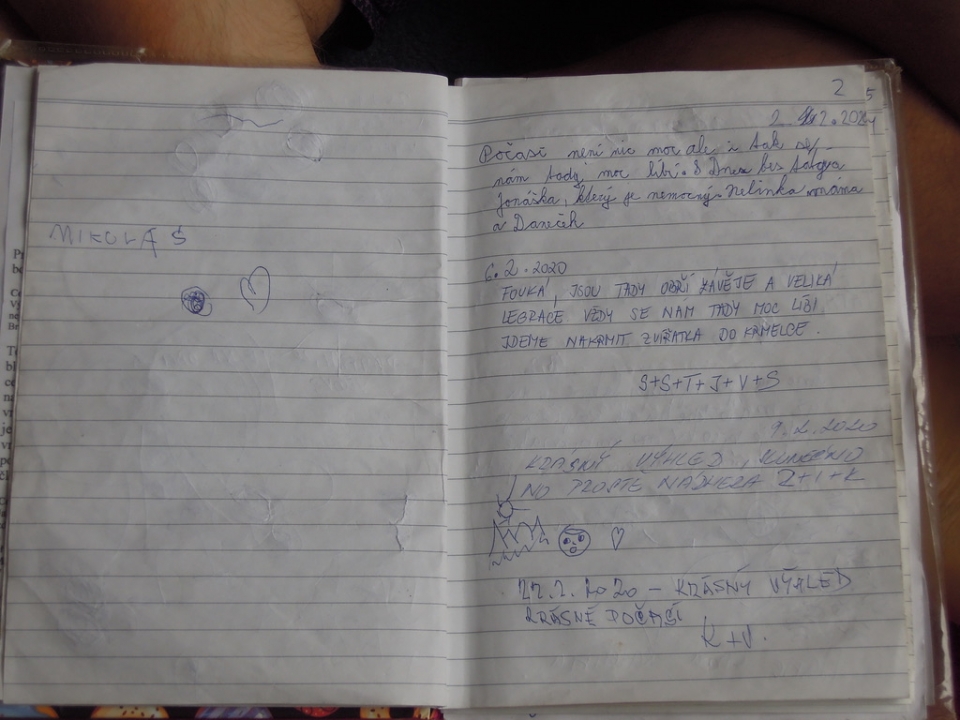 MIKOLÁŠ
2
5
2. 2.2020
Počasí není nic moc ale i tak se
nám tady moc líbí. S Dnem bez tatya
Jonáška, který je nemocný. Helinka, máma
a Daneček
6.2.2020
FOUKÁ, JSOU TADY OBŘÍ ZÁVĚJE A VELIKÁ
LEGRACE. VĚDY SE NÁM TADY MOC LÍBÍ.
JDEME NAKRMIT ZVÍŘÁTKA DO KRMELCE.
S+S+T+J+V+S
9.2.2020
KRÁSNÝ VÝHLED,
NO PROSTĚ NÁDHERA Z+I+K
27.2.2020 – KRÁSNÝ VÝHLED
KRÁSNÉ POČASÍ
K+V.